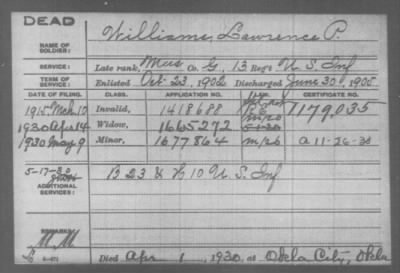 DEAD
Williams, Lawrence P.
NAME OF SOLDIER:
SERVICE: Late rank, Mus Co. G, 13 Reg't U.S. Inf
TERM OF SERVICE: Enlisted Oct. 23, 1902 Discharged June 30, 1905
DATE OF FILING. CLASS. APPLICATION NO. LAW. CERTIFICATE NO.
1915 Mch 10 Invalid, 1418688 1179,035
1930 Apr 14 Widow, 1665272
1930 May 9 Minor, 1677864 a 11-26-30
5-17-30
ADDITIONAL SERVICES: B 23 & H 10 U.S. Inf
REMARKS:
M.M
Died Apr 1, 1930, at Okla City, Okla